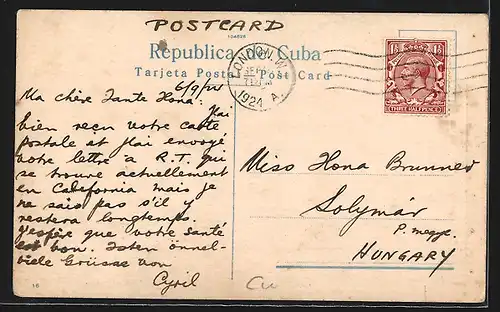 POSTCARD
Republica de Cuba
Tarjeta Postal Post Card
LONDON. W.
1924
A.
1½ 1½
THREE HALFPENCE
6/9/24
Ma chère Tante Hona: J'ai
bien reçu votre carte
postale et J'ai envoyé
votre lettre a R.T. qui
se trouve actuellement
en California mais je
ne sais pas s'il y
restera longtemps.
J'espère que votre santé
est bon. Isten önnel-
viele Grüsse von
Cyril
Miss Hona Brunner
Solymár
P. megye.
HUNGARY
16
Cu